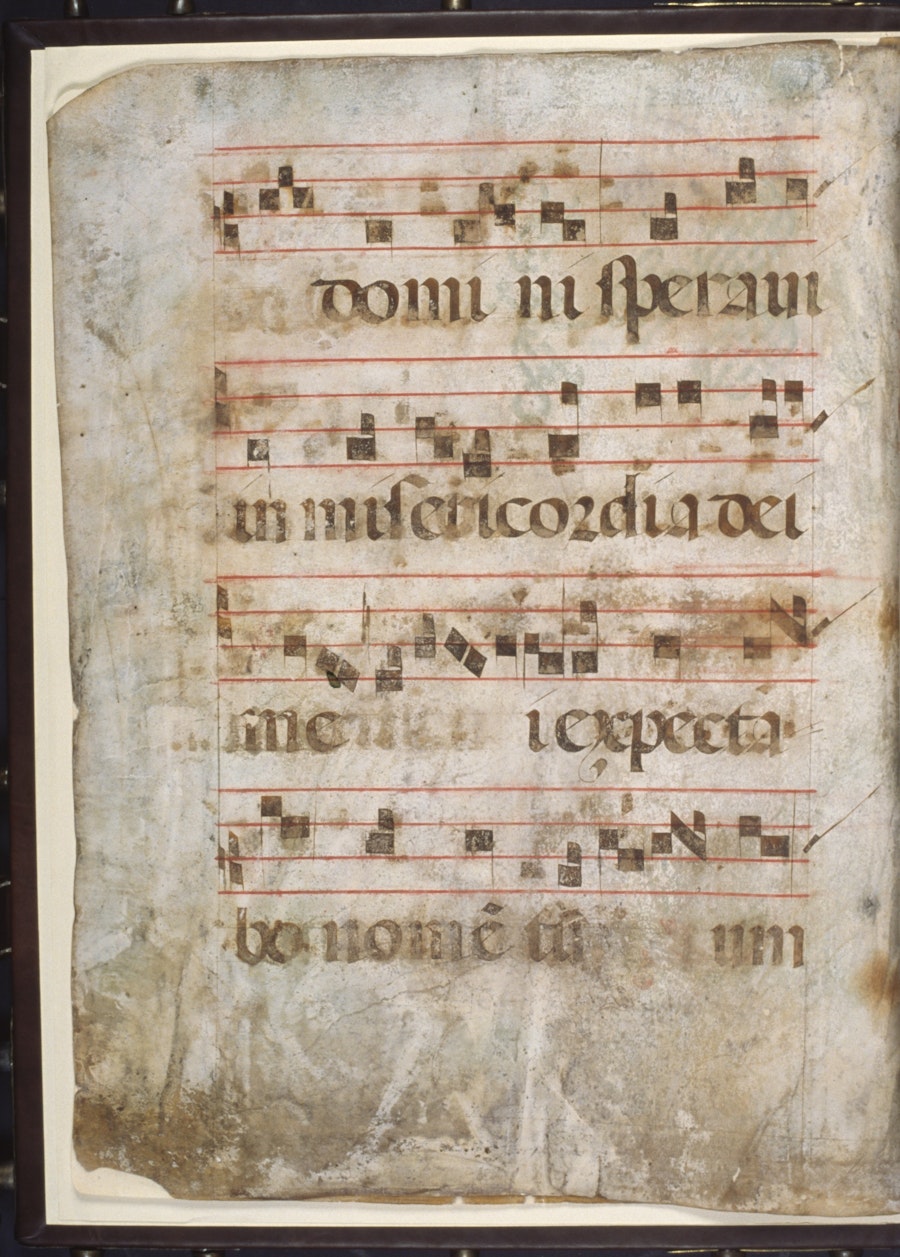 domi ni speraui
in misericordia dei
me i expecta
bo nomē tū um